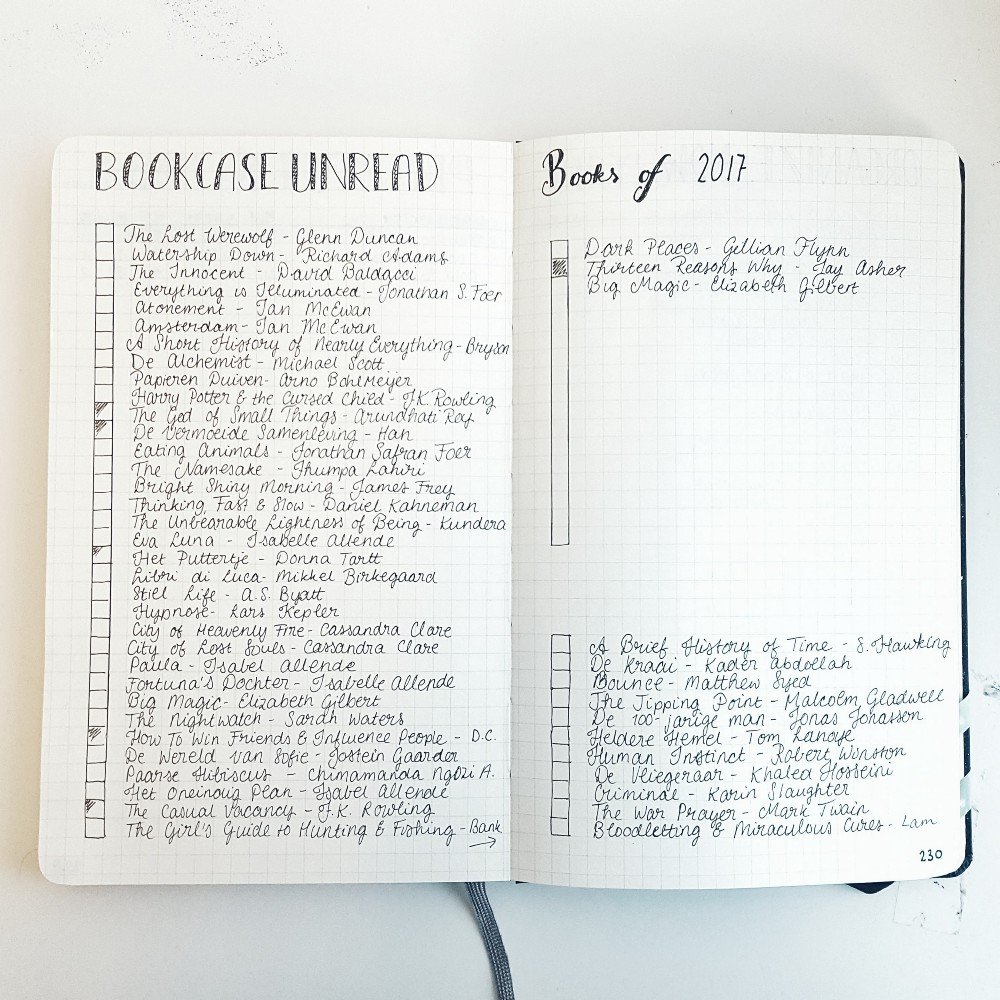 BOOKCASE UNREAD
The Lost Werewolf - Glenn Duncan
Watership Down - Richard Adams
The Innocent - David Baldacci
Everything is Illuminated - Jonathan S. Foer
Atonement - Ian McEwan
Amsterdam - Ian McEwan
A Short History of Nearly Everything - Bryson
De Alchemist - Michael Scott
Papieren Duiven - Arno Bohlmeijer
Harry Potter & the Cursed Child - J.K Rowling
The God of Small Things - Arundhati Roy
De Vermoeide Samenleving - Han
Eating Animals - Jonathan Safran Foer
The Namesake - Jhumpa Lahiri
Bright Shiny Morning - James Frey
Thinking, Fast & Slow - Daniel Kahneman
The Unbearable Lightness of Being - Kundera
Eva Luna - Isabelle Allende
Het Puttertje - Donna Tartt
Libri di Luca - Mikkel Birkegaard
Still Life - A.S. Byatt
Hypnose - Lars Kepler
City of Heavenly Fire - Cassandra Clare
City of Lost Souls - Cassandra Clare
Paula - Isabel Allende
Fortuna's Dochter - Isabelle Allende
Big Magic - Elizabeth Gilbert
The Nightwatch - Sarah Waters
How To Win Friends & Influence People - D.C.
De Wereld van Sofie - Jostein Gaarder
Paarse Hibiscus - Chimamanda Ngozi A.
Het Oneindig Plan - Isabel Allende
The Casual Vacancy - J.K. Rowling
The Girl's Guide to Hunting & Fishing - Bank
Books of 2017
Dark Places - Gillian Flynn
Thirteen Reasons Why - Jay Asher
Big Magic - Elizabeth Gilbert
A Brief History of Time - S. Hawking
De Kraai - Kader Abdollah
Bounce - Matthew Syed
The Tipping Point - Malcolm Gladwell
De 100-jarige man - Jonas Jonasson
Heldere Hemel - Tom Lanoye
Human Instinct - Robert Winston
De Vliegeraar - Khaled Hosseini
Criminal - Karin Slaughter
The War Prayer - Mark Twain
Bloodletting & Miraculous Cures - Lam
230